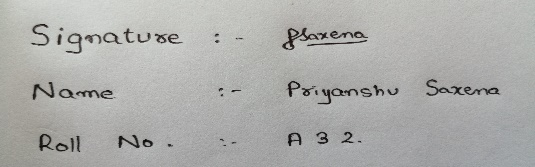 Signature :- PSaxena
Name :- Priyanshu Saxena
Roll No. :- A 32.